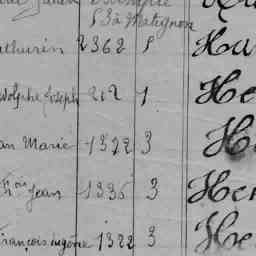 53 à Matignon
athurin 2362 1 Ha
dolphe Joseph 212 1 He
an Marie 1322 3 H
Jean 1335 3 Her
rançois Eugène 1322 3 He